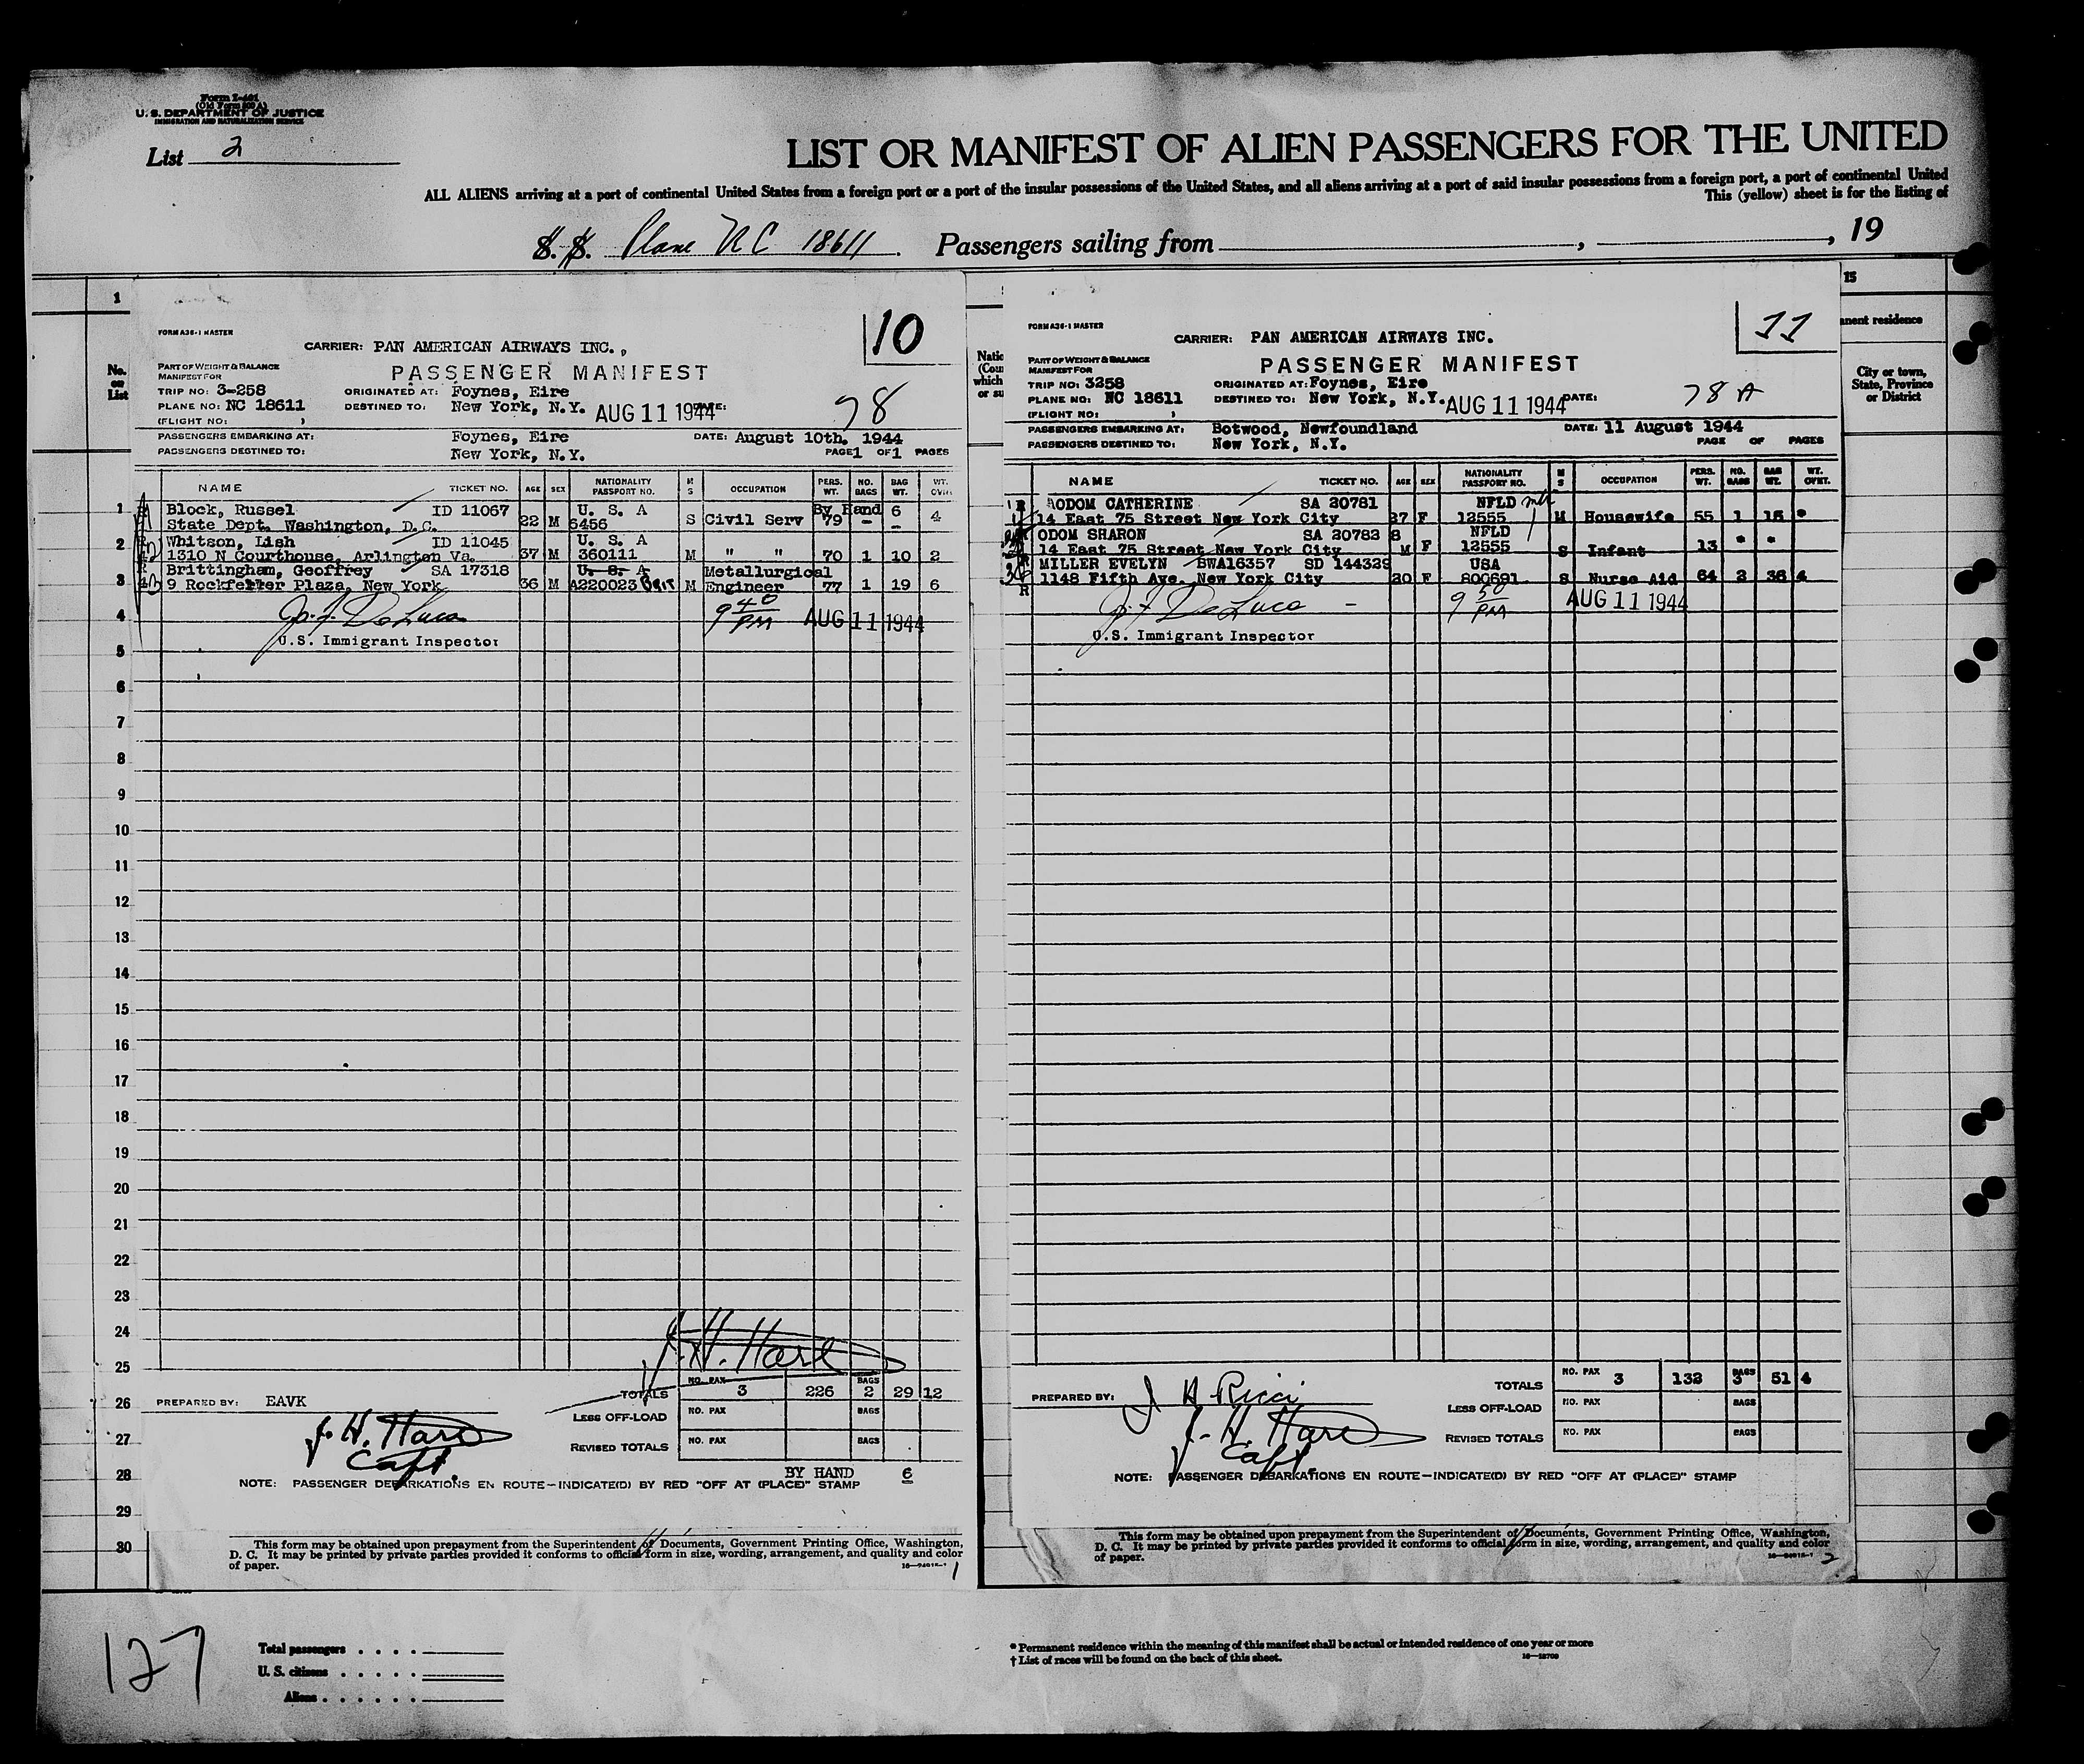 Form I-461
(Old Form 500 A)
U. S. DEPARTMENT OF JUSTICE
IMMIGRATION AND NATURALIZATION SERVICE
List 2
LIST OR MANIFEST OF ALIEN PASSENGERS FOR THE UNITED
ALL ALIENS arriving at a port of continental United States from a foreign port or a port of the insular possessions of the United States, and all aliens arriving at a port of said insular possessions from a foreign port, a port of continental United
This (yellow) sheet is for the listing of
S. S. Plane NC 18611. Passengers sailing from , , 19
1
No. on List
FORM A36-1 MASTER
10
CARRIER: PAN AMERICAN AIRWAYS INC.,
PART OF WEIGHT & BALANCE
MANIFEST FOR
PASSENGER MANIFEST
TRIP NO: 3-258 ORIGINATED AT: Foynes, Eire
PLANE NO: NC 18611 DESTINED TO: New York, N.Y. AUG 11 1944 DATE: 78
(FLIGHT NO: )
PASSENGERS EMBARKING AT: Foynes, Eire DATE: August 10th. 1944
PASSENGERS DESTINED TO: New York, N.Y. PAGE 1 OF 1 PAGES
NAME TICKET NO. AGE SEX NATIONALITY PASSPORT NO. M S OCCUPATION PERS. WT. NO. BAGS BAG WT. WT. OVWT.
1 Block, Russel ID 11067 U. S. A By Hand 6
State Dept. Washington, D.C. 22 M 6456 S Civil Serv 79 - - 4
2 Whitson, Lish ID 11045 U. S. A
1310 N Courthouse, Arlington Va. 37 M 360111 M " " 70 1 10 2
3 Brittingham, Geoffrey SA 17318 U. S. A Metallurgical
9 Rockfeller Plaza, New York 36 M A220023 Brit M Engineer 77 1 19 6
4 J. F. DeLuca 9 40 PM AUG 11 1944
U.S. Immigrant Inspector
5
6
7
8
9
10
11
12
13
14
15
16
17
18
19
20
21
22
23
24
25
26
27
28
29
30
J. H. Hart
TOTALS NO. PAX 3 226 BAGS 2 29 12
PREPARED BY: EAVK
LESS OFF-LOAD NO. PAX BAGS
J. H. Hart
Capt.
REVISED TOTALS NO. PAX BAGS
BY HAND 6
NOTE: PASSENGER DEBARKATIONS EN ROUTE—INDICATE(D) BY RED "OFF AT (PLACE)" STAMP
This form may be obtained upon prepayment from the Superintendent of Documents, Government Printing Office, Washington,
D. C. It may be printed by private parties provided it conforms to official form in size, wording, arrangement, and quality and color
of paper.
1
Natio
(Cou
which
or su
FORM A36-1 MASTER
11
CARRIER: PAN AMERICAN AIRWAYS INC.
PART OF WEIGHT & BALANCE
MANIFEST FOR
PASSENGER MANIFEST
TRIP NO: 3258 ORIGINATED AT: Foynes, Eire
PLANE NO: NC 18611 DESTINED TO: New York, N.Y. AUG 11 1944 DATE: 78 A
(FLIGHT NO: )
PASSENGERS EMBARKING AT: Botwood, Newfoundland DATE: 11 August 1944
PASSENGERS DESTINED TO: New York, N.Y. PAGE OF PAGES
NAME TICKET NO. AGE SEX NATIONALITY PASSPORT NO. M S OCCUPATION PERS. WT. NO. BAGS BAG WT. WT. OVRT.
AODOM CATHERINE SA 20781 NFLD
14 East 75 Street New York City 27 F 12555 M Housewife 55 1 15 *
ODOM SHARON SA 20782 8 NFLD
14 East 75 Street New York City M F 12555 S Infant 13 * *
MILLER EVELYN BWA16357 SD 144329 USA
1148 Fifth Ave. New York City 20 F 800691 S Nurse Aid 64 2 36 4
J. F. DeLuca 9 50 PM AUG 11 1944
U.S. Immigrant Inspector
TOTALS NO. PAX 3 132 BAGS 3 51 4
PREPARED BY: J H Ricci
LESS OFF-LOAD NO. PAX BAGS
J. H. Hart
Capt.
REVISED TOTALS NO. PAX BAGS
NOTE: PASSENGER DEBARKATIONS EN ROUTE—INDICATE(D) BY RED "OFF AT (PLACE)" STAMP
This form may be obtained upon prepayment from the Superintendent of Documents, Government Printing Office, Washington,
D. C. It may be printed by private parties provided it conforms to official form in size, wording, arrangement, and quality and color
of paper.
2
15
anent residence
City or town,
State, Province
or District
127
Total passengers . . . .
U. S. citizens . . . . .
Aliens . . . . . .
* Permanent residence within the meaning of this manifest shall be actual or intended residence of one year or more
† List of races will be found on the back of this sheet.